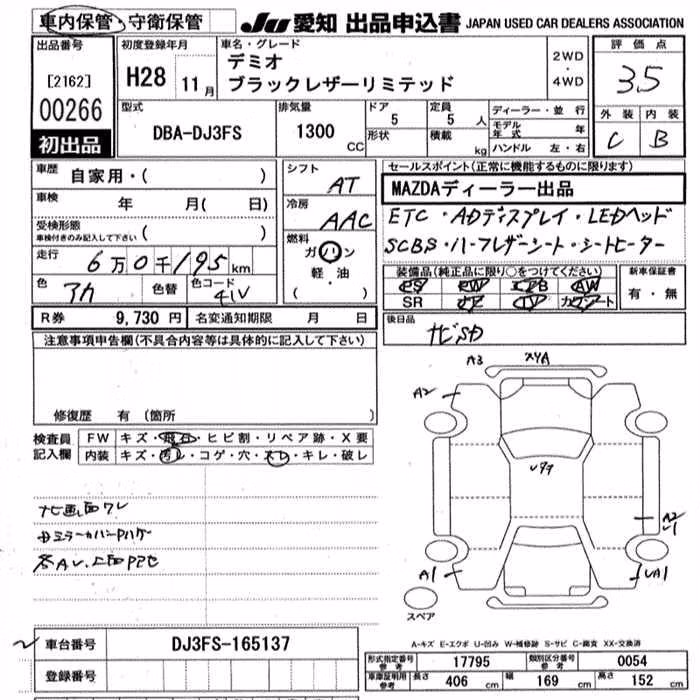 車内保管・守衛保管
JU 愛知 出品申込書 JAPAN USED CAR DEALERS ASSOCIATION
出品番号
[2162]
00266
初出品
初度登録年月
H28 11月
車名・グレード
デミオ
ブラックレザーリミテッド
2WD
・
4WD
評価点
3.5
外装 内装
C B
型式
DBA-DJ3FS
排気量
1300
CC
ドア
5
形状
定員
5 人
積載
kg
ディーラー・並行
モデル年式 年
ハンドル 左・右
車歴
自家用・( )
車検
年 月( 日)
受検形態
車検付きのみ記入して下さい ( )
走行
6万0千195km
色
アカ
色替
色コード
41V
シフト
AT
冷房
AAC
燃料
ガソリン
軽・油
( )
セールスポイント(正常に機能するものに限ります)
MAZDAディーラー出品
ETC・ADディスプレイ・LEDヘッド
SCBS・ハーフレザーシート・シートヒーター
装備品(純正品に限り○をつけてください)
PS PW エアB AW
SR ナビ TV カワシート
新車保証書
有・無
R券 9,730円 名変通知期限 月 日
後日品
ナビSD
注意事項申告欄(不具合内容等は具体的に記入して下さい)
修復歴 有(箇所 )
検査員
記入欄
FW キズ・飛石・ヒビ割・リペア跡・X要
内装 キズ・汚レ・コゲ・穴・スレ・キレ・破レ
ナビ画面ワレ
A3
XYA
A2
A2
A1
UA1
スペア
A-キズ E-エクボ U-凹み W-補修跡 S-サビ C-腐食 XX-交換済
車台番号 DJ3FS-165137
登録番号
形式指定番号 参考 17795 類別区分番号 参考 0054
車庫証明用 参考 長さ 406 cm 幅 169 cm 高さ 152 cm